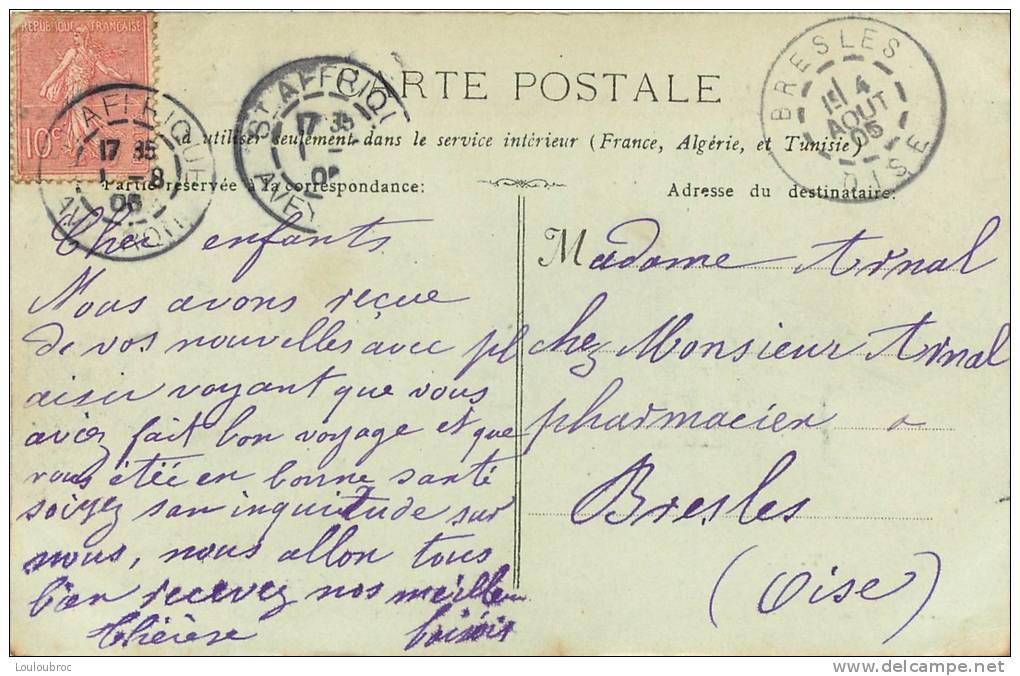 REPUBLIQUE FRANÇAISE
10c
AFFRIQUE
17 35
1 - 8
06
ST AFFRIQUE
17 35
AVEY
CARTE POSTALE
BRESLES
4
AOUT
06
OISE
à utiliser seulement dans le service intérieur (France, Algérie, et Tunisie)
Partie réservée à la correspondance:
Adresse du destinataire:
Cher enfants
Nous avons reçue
de vos nouvelles avec pl
aisir voyant que vous
aviez fait bon voyage et que
vous étée en bonne santé
soiyez san inquietude sur
nous, nous allon tous
bien recevez nos meilleu
Thérèse baisers
Madame Arnal
chez Monsieur Arnal
pharmacien a
Bresles
(Oise)
Louloubroc
www.delcampe.net